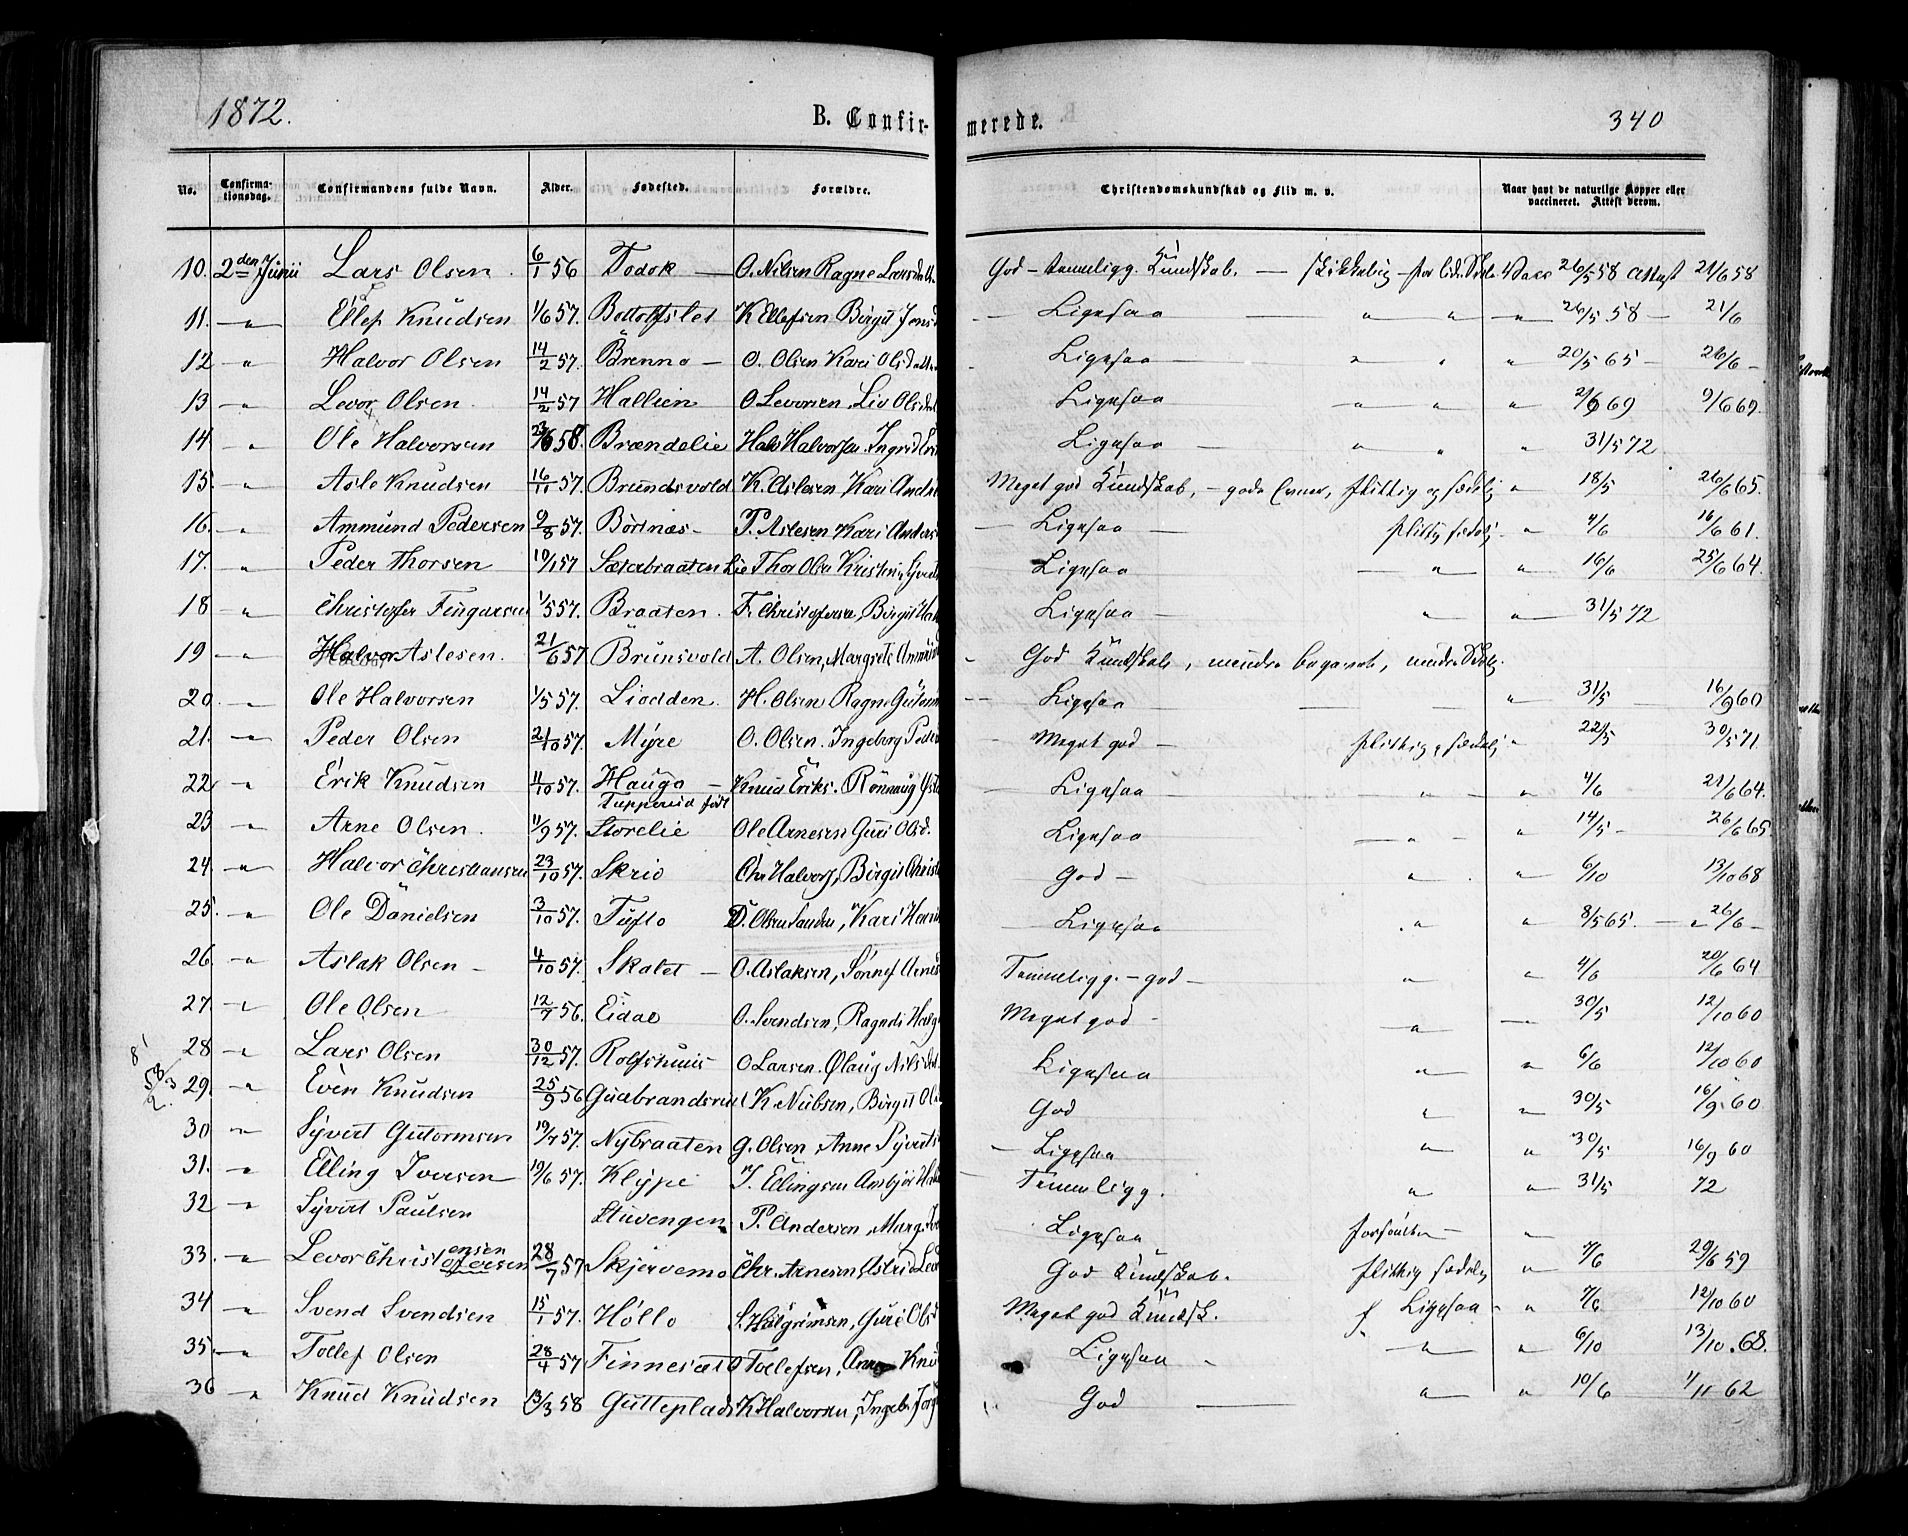 1872.
B. Confir-merede.
340
No. Confirma-tionsdag. Confirmandens fulde Navn. Alder. Fødested. Forældre. Christendomskundskab og Flid m. v. Naar havt de naturlige Kopper eller vaccineret. Attest derom.
10. 2den Junii Lars Olsen 6/1 56 Todok O. Nilsen Ragne Larsdatt God - temmeligg. Kundskab. - skikkelig - Vacc 26/5 58 Attest 21/6 58
11. " Ellef Knudsen 1/6 57. Bottolfslet K Ellefsen Birgit Jonsd Ligesaa " " " 26/5 58 - 21/6
12 " Halvor Olsen 14/2 57. Brenno - O. Olsen Kari Olsdatt Ligesaa " " " 20/5 65 - 26/6 -
13 " Levor Olsen 14/2 57 Hallien O Levorsen, Liv Olsd Ligesaa " " " 2/6 69 9/6 69.
14 " Ole Halvorsen 58. Brændelie Halv Halvorsen Ingrid Ligesaa " " " 31/5 72
15. " Asle Knudsen 16/11 57. Brundsvold K. Aslesen Kari Meget god Kundskab, - gode Evner, flittig og sædelig " 18/5 26/6 65.
16. " Ammund Pedersen 9/8 57. Børtnæs - P. Aslesen Kari Anders Ligesaa - flittig sædelig. " 4/6 16/6 61.
17. " Peder Thorsen 19/1 57 Sæterbraaten Lie Thor Olsen Kristin Ligesaa " " 16/6 25/6 64.
18 " Christofer Fingarsen 1/5 57. Braaten. F. Christofersen, Birgit Ligesaa " " 31/5 72
19 " Halvor Aslesen. 21/6 57 Brunsvold A. Olsen, Margrete God Kundskab, mindre begavet,
20. " Ole Halvorsen 1/5 57. Liodden. H. Olsen Ragne Ligesaa " 31/5 16/9 60
21. " Peder Olsen 21/10 57. Myre O. Olsen. Ingeborg Peder Meget god - flittig, sædelig " 22/5 30/5 71.
22 " Erik Knudsen 11/10 57. Haugo - Knud Eriks. Rønnaug Ligesaa " " 4/6 21/6 64.
23 " Arne Olsen. 11/9 57. Tuppeset født Storelie Ole Arnesen Guri Olsd. Ligesaa " " 14/5 - 26/6 65
24. " Halvor Christiansen 23/10 57. Skrio Chr Halvors, Birgit Christ God - " " 6/10 13/10 68
25. " Ole Danielsen 3/10 57. Tufto D. Olsen Sanden, Kari Ligesaa " " 8/5 65. - " 26/6 -
26. " Aslak Olsen - 4/10 57. Skalet - O. Aslaksen, Sønnef Arnes Temmeligg. - god - " " 4/6 20/6 64
27. " Ole Olsen 12/7 56. Eidal O. Svendsen, Ragndi Meget god - " 30/5 12/10 60
28 " Lars Olsen 30/12 57. Rolfshuus O Larsen. Ølaug Nilsdat Ligesaa " " 6/6 12/10 60
29. " Even Knudsen 25/9 56 Gulbrandsrud K. Nubsen, Birgit Ol God " " 30/5 16/9 60
30 " Syvert Guttormsen 19/7 57. Nybraaten G. Olsen, Anne Syverts Ligesaa " " 30/5 16/9 60
31. " Elling Iversen 19/6 57. Klype I. Ellingsen Ambjør Temmeligg. " " 31/5 72
32 " Syvert Paulsen Stuvengen P. Andersen, Marg. Ligesaa "
33. " Levor Christofersen ensen 28/7 57 Skjervemo Chr. Arnesen Astrid Lev God Kundskab. flittig sædelig " 7/6 29/6 59
34 " Svend Svendsen 15/1 57. Hollo S. Halgrimsen, Guri Olsd Meget god Kundsk. Ligesaa " 7/6 12/10 60
35. " Tollef Olsen 28/4 57 Finnesæt O Tollefsen, Anne Knu Ligesaa " " 6/10 13/10. 68.
36 " Knud Knudsen 13/3 58 Gutteplads K Halvorsen, Ingeb. God " " 10/6 1/11 62